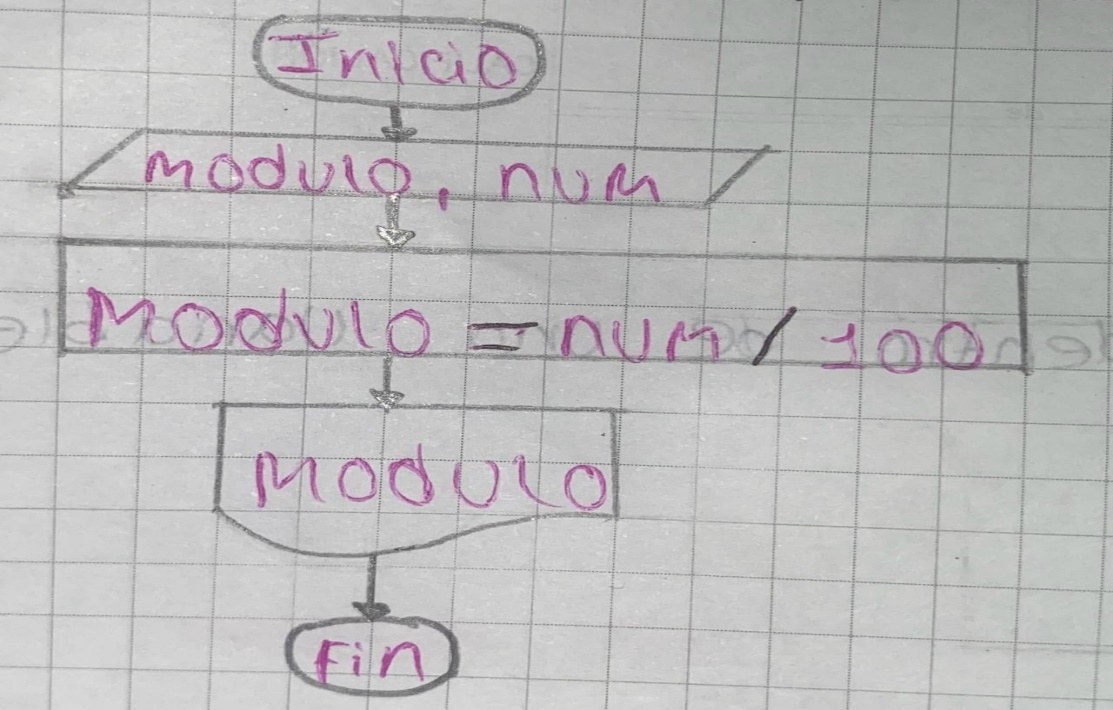 Inicio
modulo, num
Modulo = num / 100
Modulo
Fin